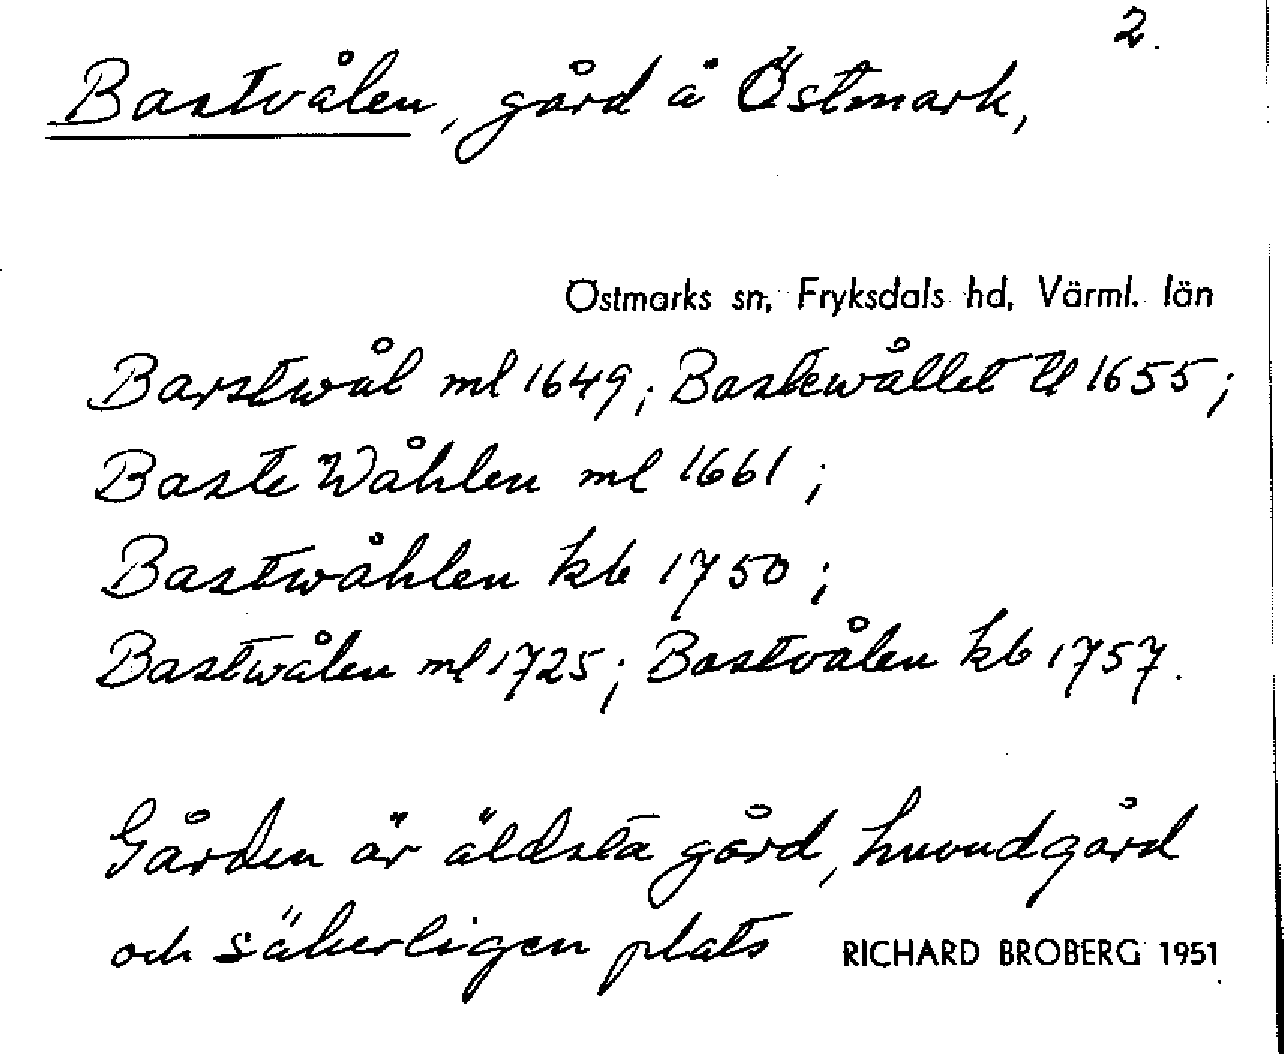 2.
Bastvålen, gård å Östmark,
Östmarks sn, Fryksdals hd, Värml. län
Barstwål ml 1649; Bastewållet ll 1655;
Baste Wåhlen ml 1661;
Bastwåhlen kb 1750;
Bastwålen ml 1725; Bastvålen kb 1757.
Gården är äldsta gård, huvudgård
och säkerligen plats
RICHARD BROBERG 1951